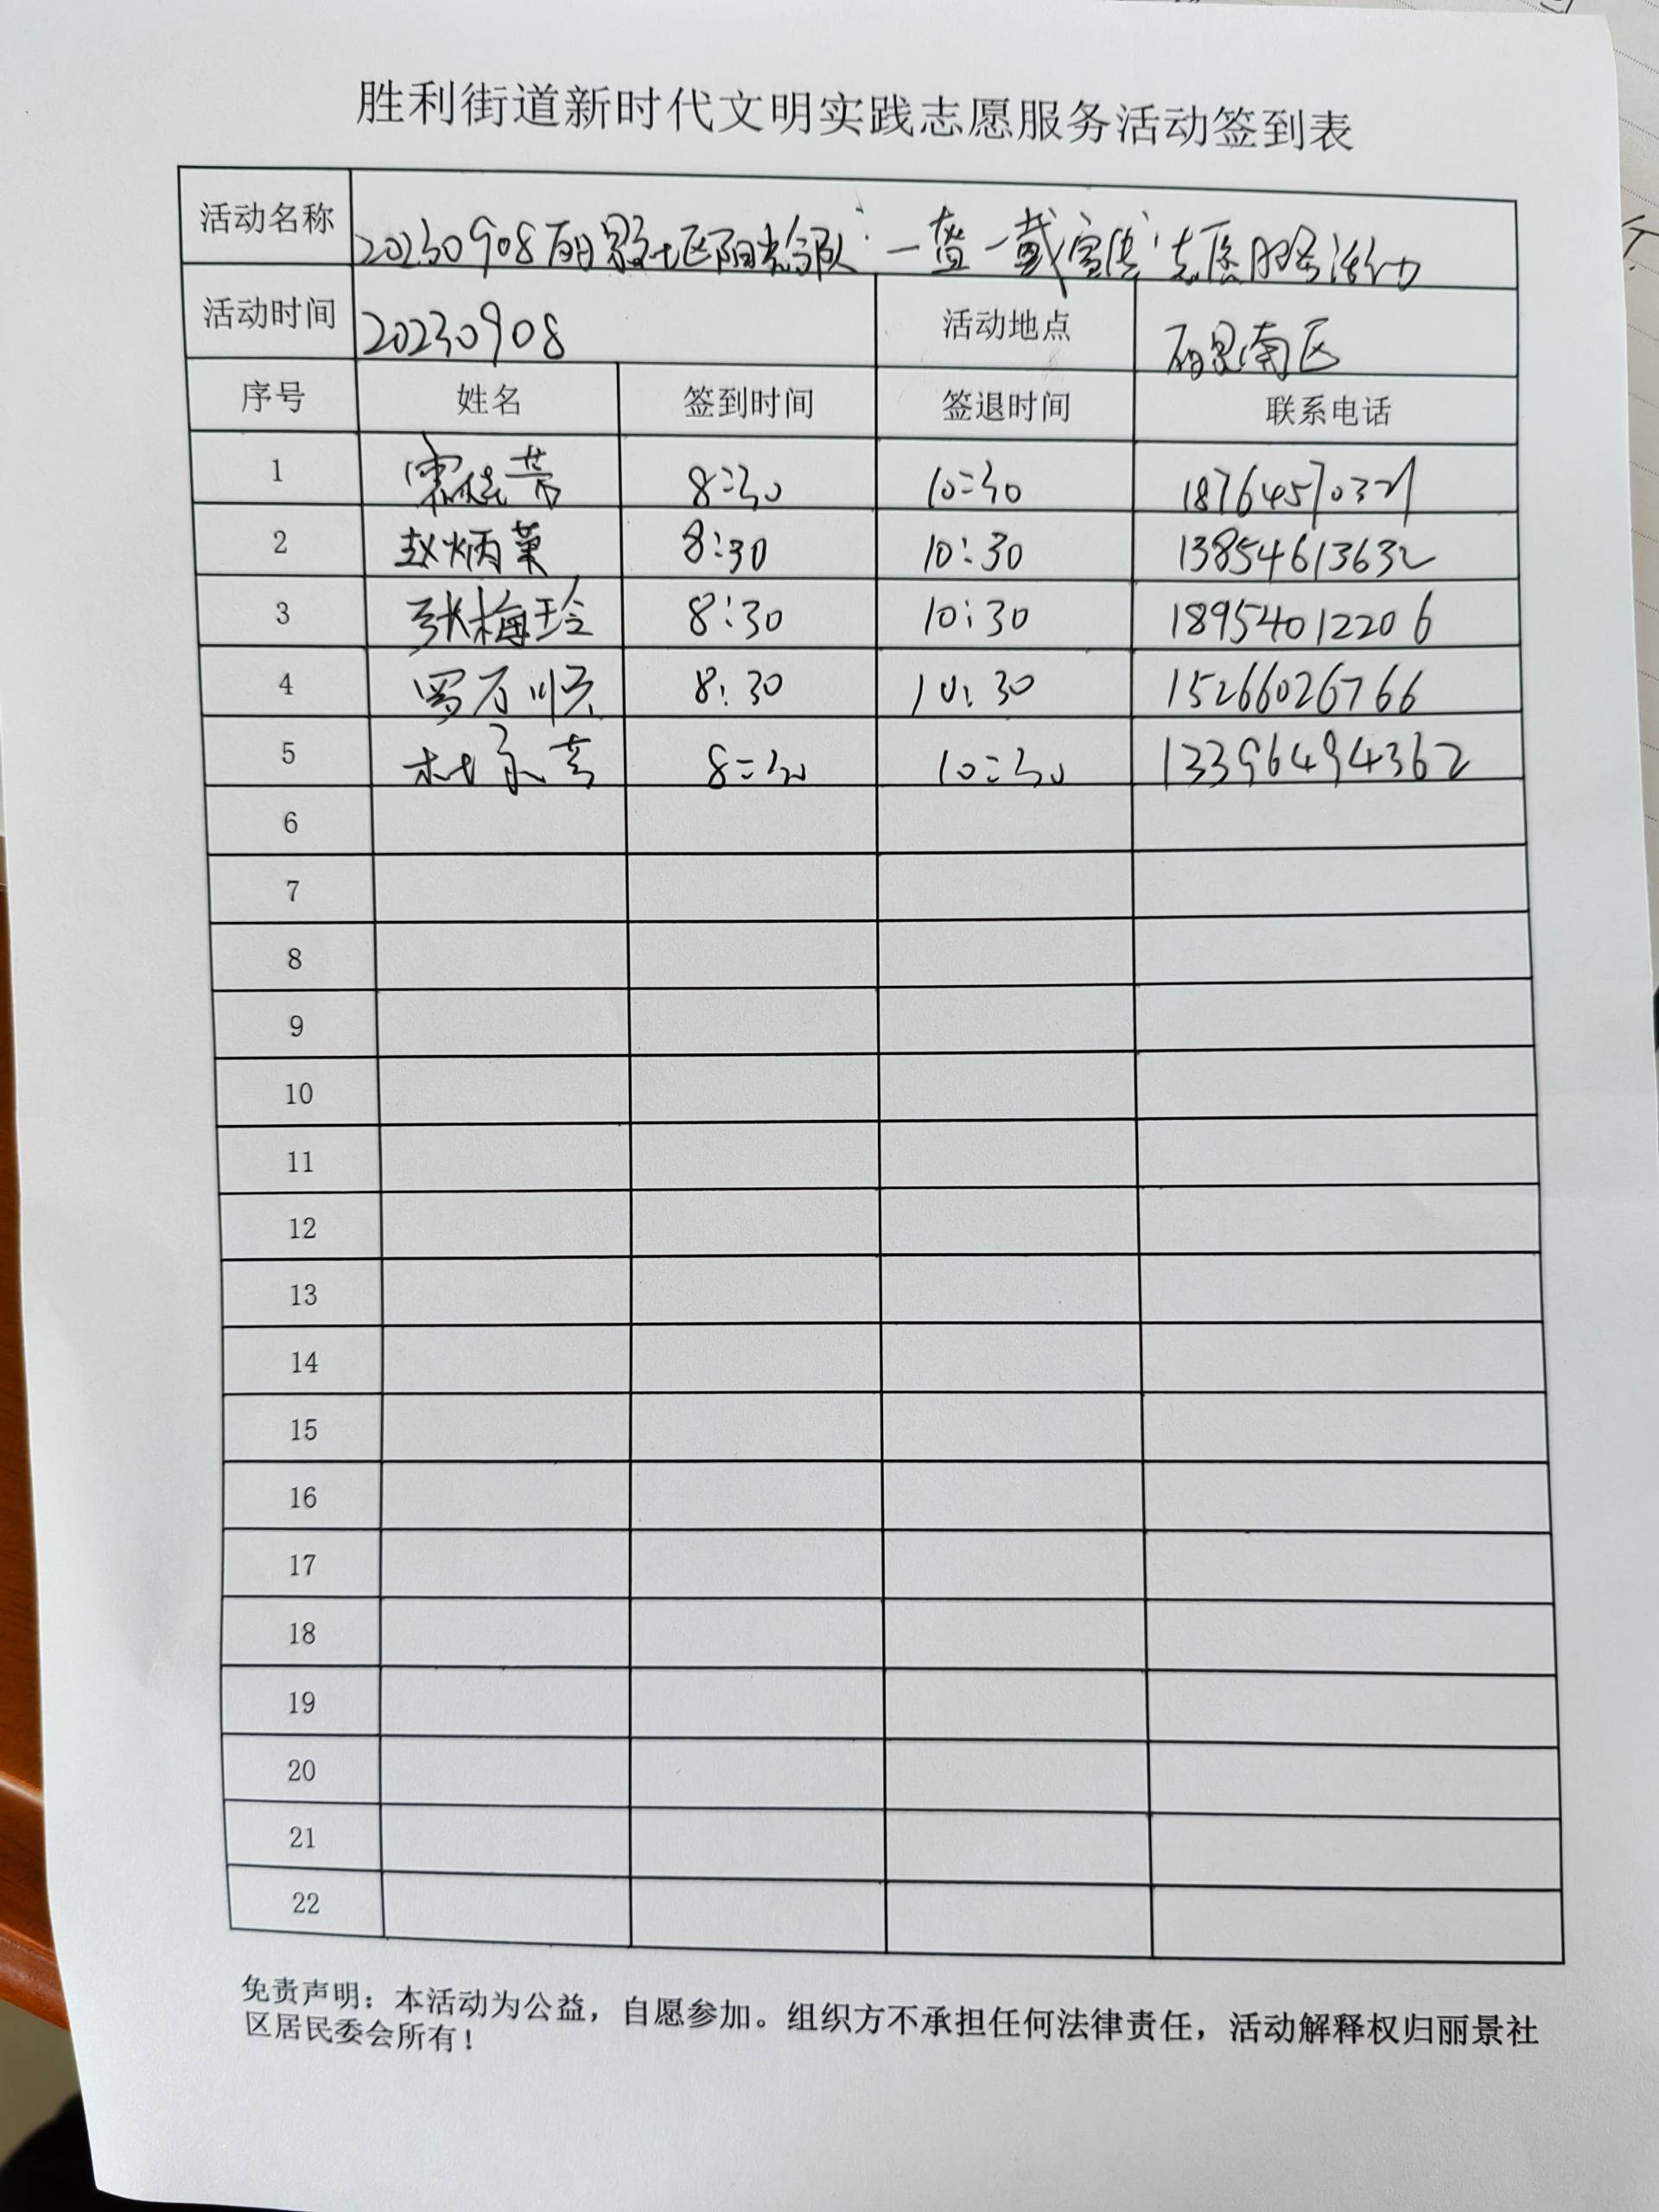 胜利街道新时代文明实践志愿服务活动签到表
活动名称 20230908丽景社区阳光分队“一盔一戴宣传”志愿服务活动
活动时间 20230908 活动地点 丽景南区
序号 姓名 签到时间 签退时间 联系电话
1 8:30 10:30
2 赵炳菊 8:30 10:30 13854613632
3 张梅玲 8:30 10:30 18954012206
4 罗万顺 8:30 10:30 15266026766
5 8:30 10:30 13396494362
6
7
8
9
10
11
12
13
14
15
16
17
18
19
20
21
22
免责声明：本活动为公益，自愿参加。组织方不承担任何法律责任，活动解释权归丽景社
区居民委会所有！